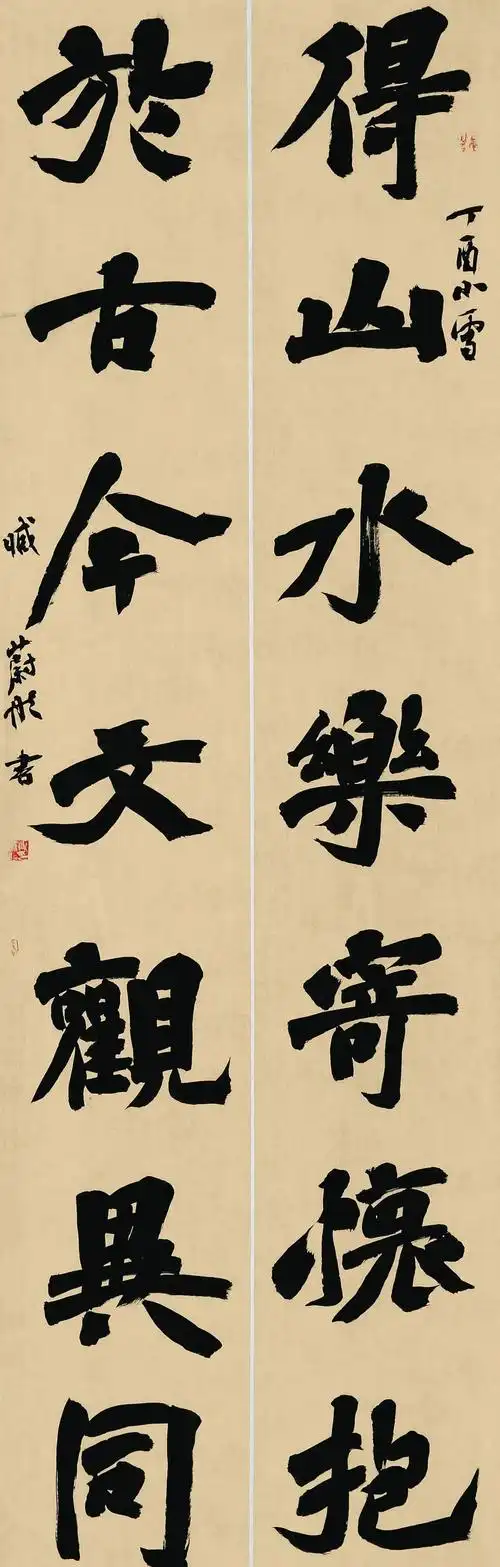 得山水樂寄懷抱
丁酉小雪
於古今文觀異同
臧蔚彤書